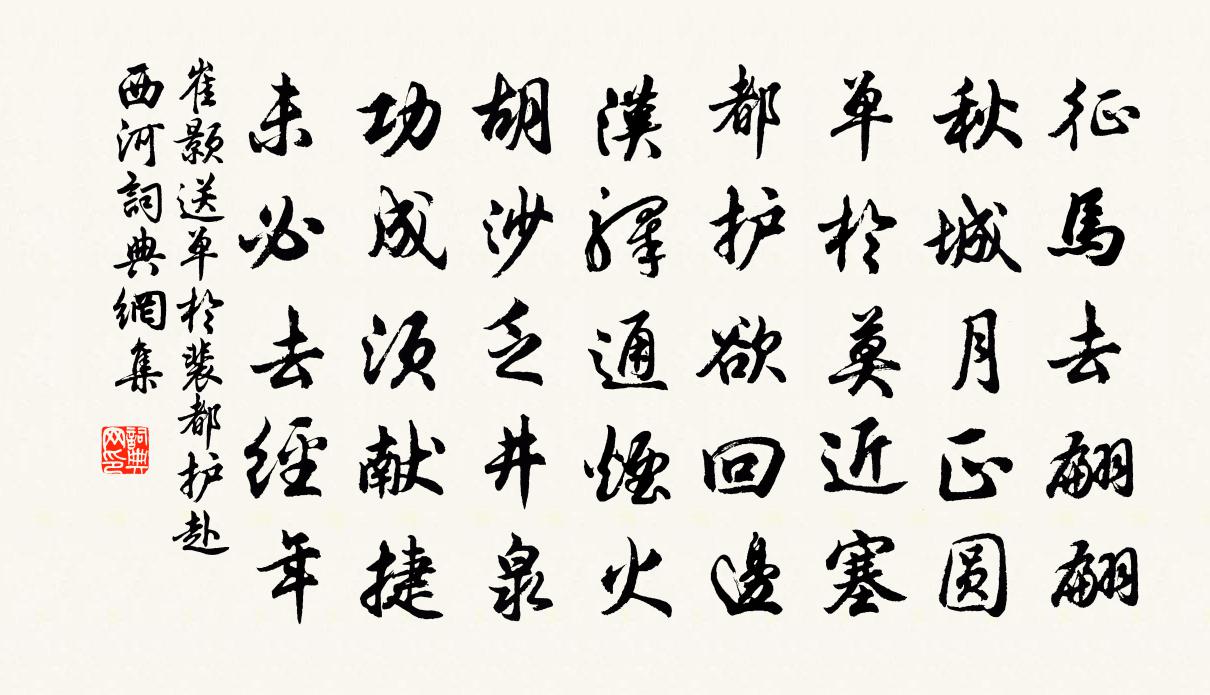 征馬去翩翩
秋城月正圆
单於莫近塞
都护欲回邊
漢驛通煙火
胡沙乏井泉
功成须献捷
未必去經年
崔颢送单於裴都护赴
西河詞典網集
詞典网印